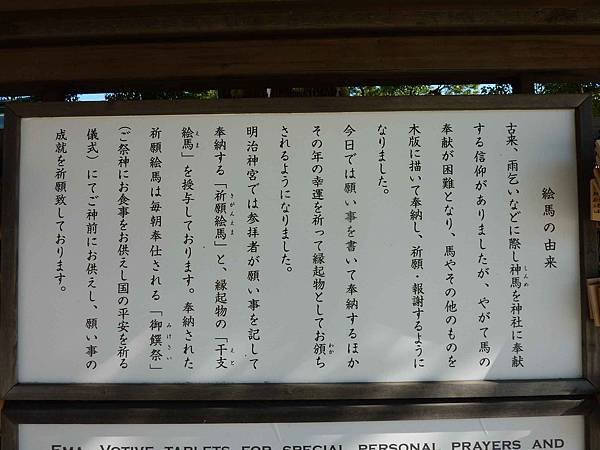 絵馬の由来
古来、雨乞いなどに際し神馬を神社に奉献
しんめ
する信仰がありましたが、やがて馬の
奉献が困難となり、馬やその他のものを
木版に描いて奉納し、祈願・報謝するように
なりました。
今日では願い事を書いて奉納するほか
その年の幸運を祈って縁起物としてお頒ち
わか
されるようになりました。
明治神宮では参拝者が願い事を記して
奉納する「祈願絵馬」と、縁起物の「干支
きがんえま
えと
絵馬」を授与しております。奉納された
えま
祈願絵馬は毎朝奉仕される「御饌祭」
みけさい
(ご祭神にお食事をお供えし国の平安を祈る
儀式)にてご神前にお供えし、願い事の
成就を祈願致しております。
EMA, VOTIVE TABLETS FOR SPECIAL PERSONAL PRAYERS AND